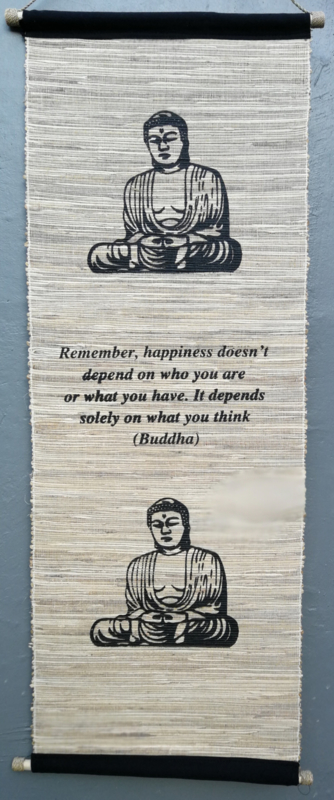 Remember, happiness doesn't
depend on who you are
or what you have. It depends
solely on what you think
(Buddha)